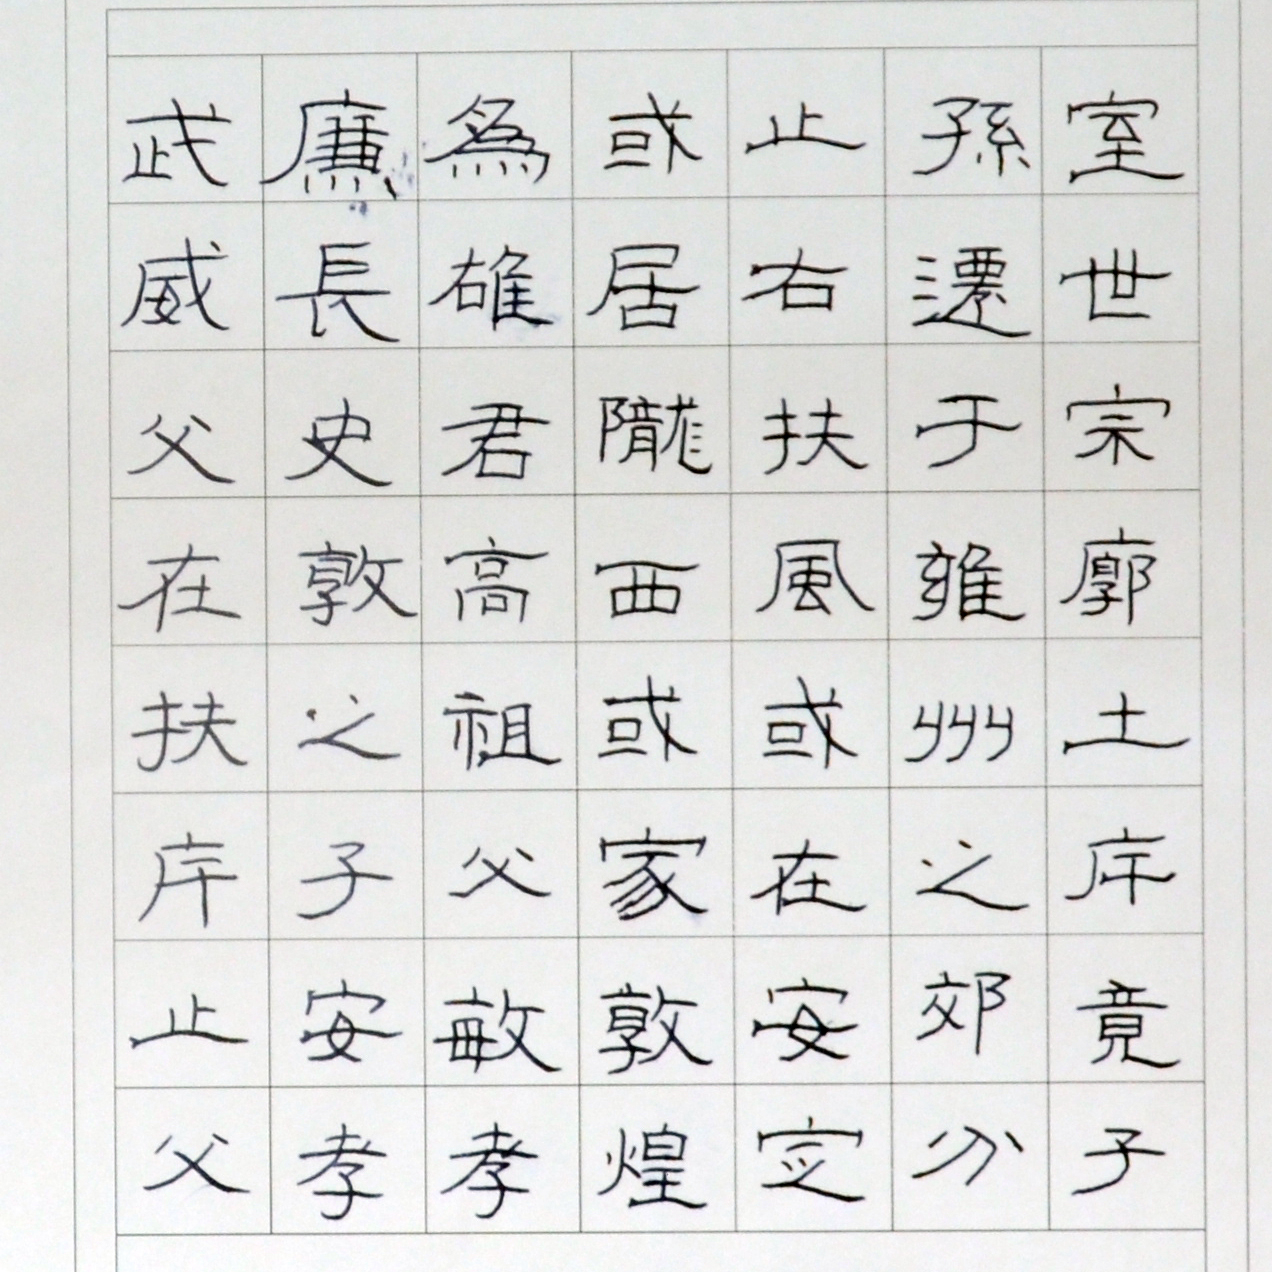 室世宗廓土斥竟子
孫遷于雍州之郊分
止右扶風或在安定
或居隴西或家敦煌
為雄君高祖父敏孝
廉長史敦之子安孝
武威父在扶斥止父